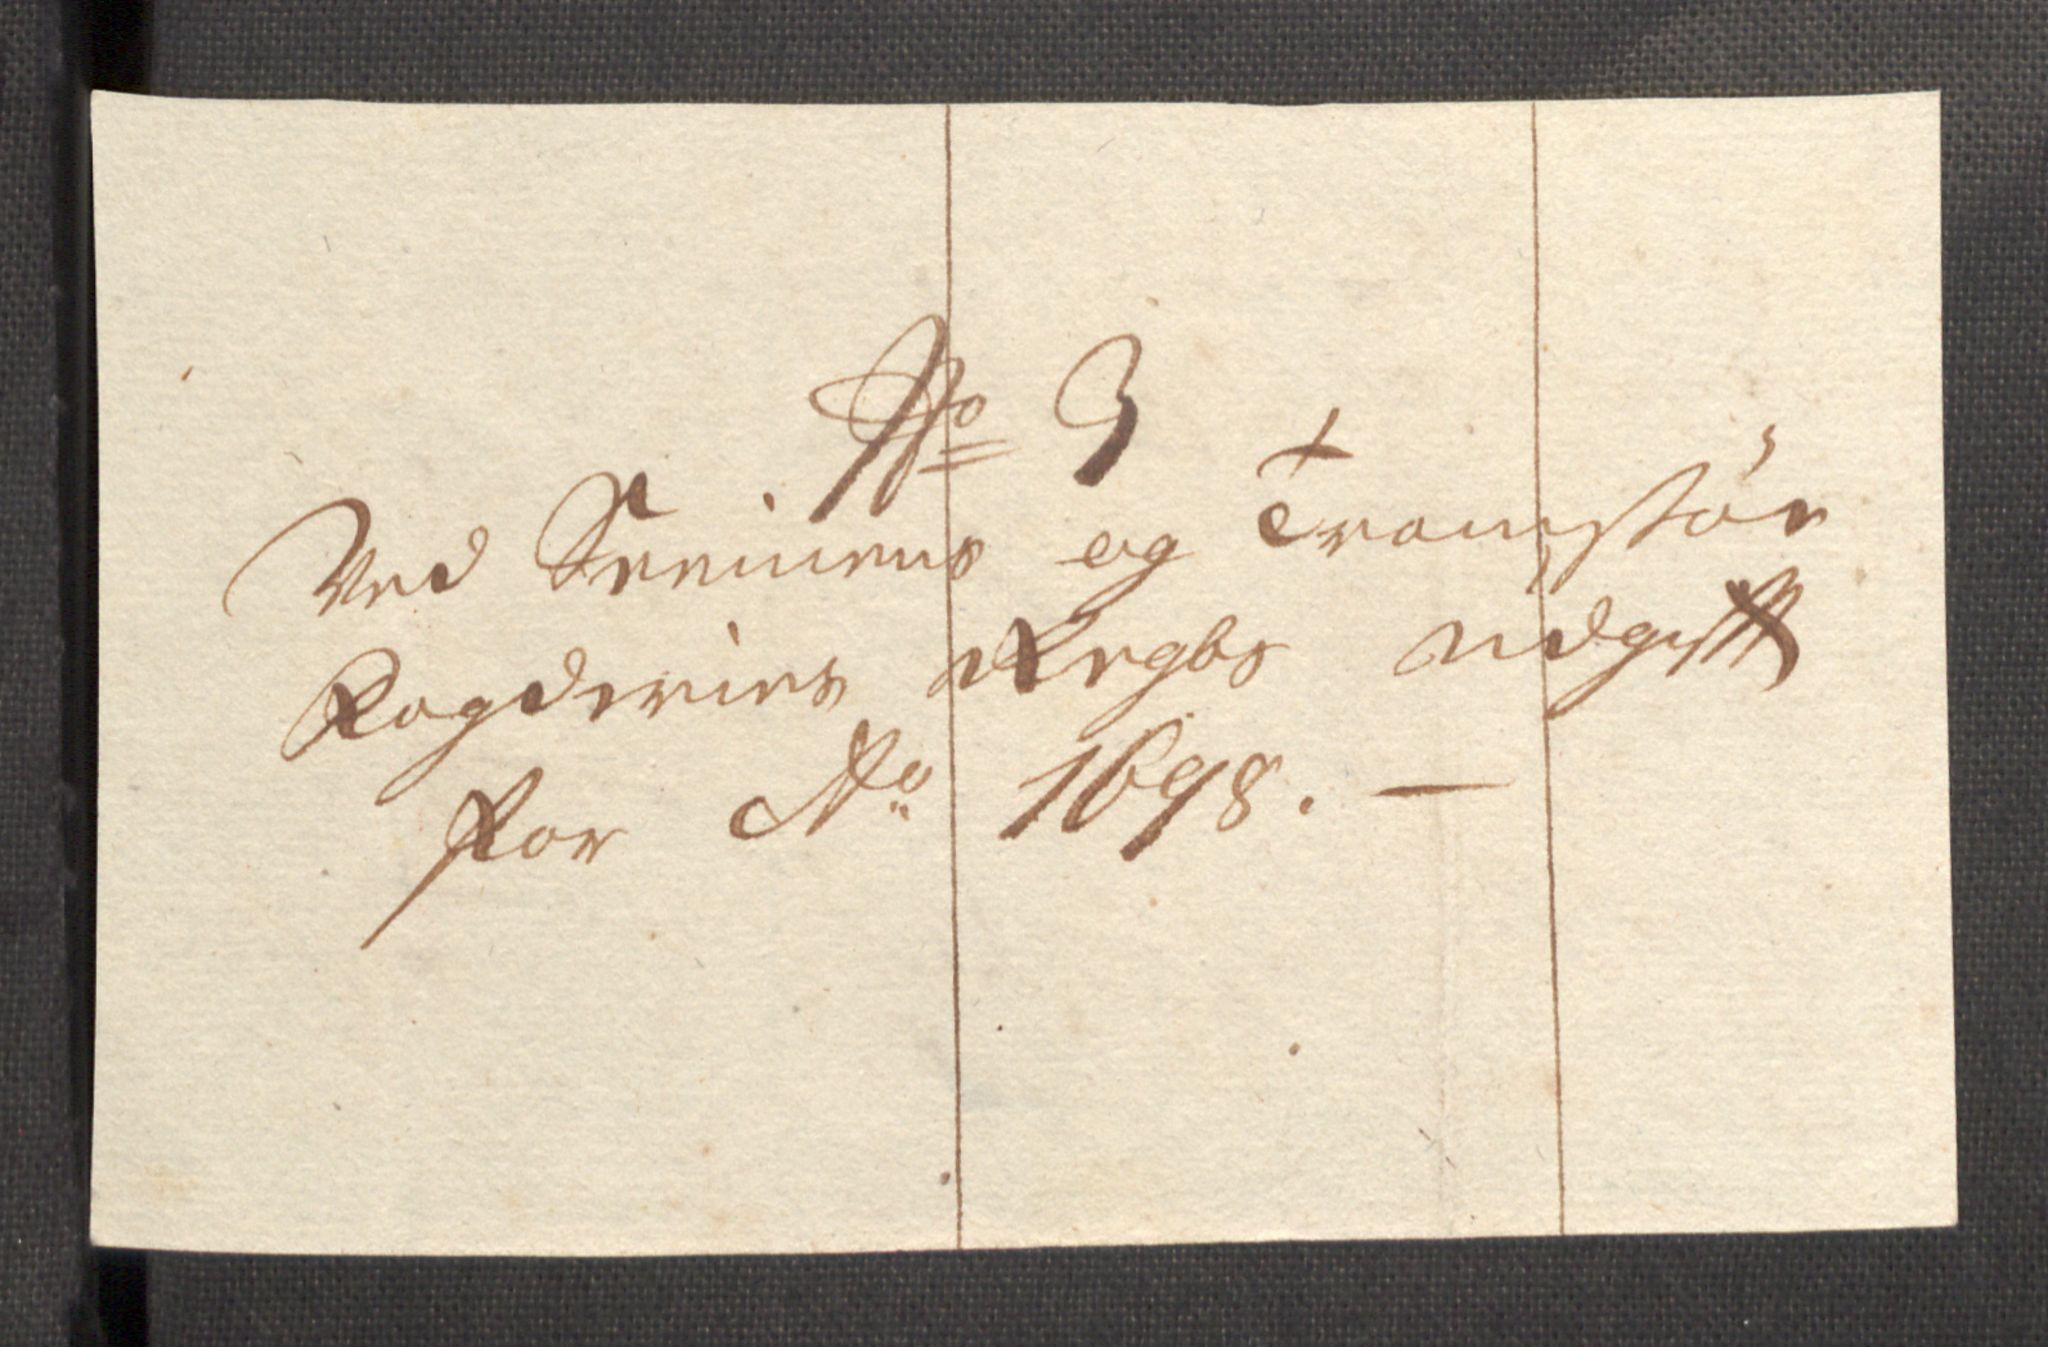 No 3
Ved Senniens og Tromsøe
Fogderies Regbs udgifft
for Ao 1698. —